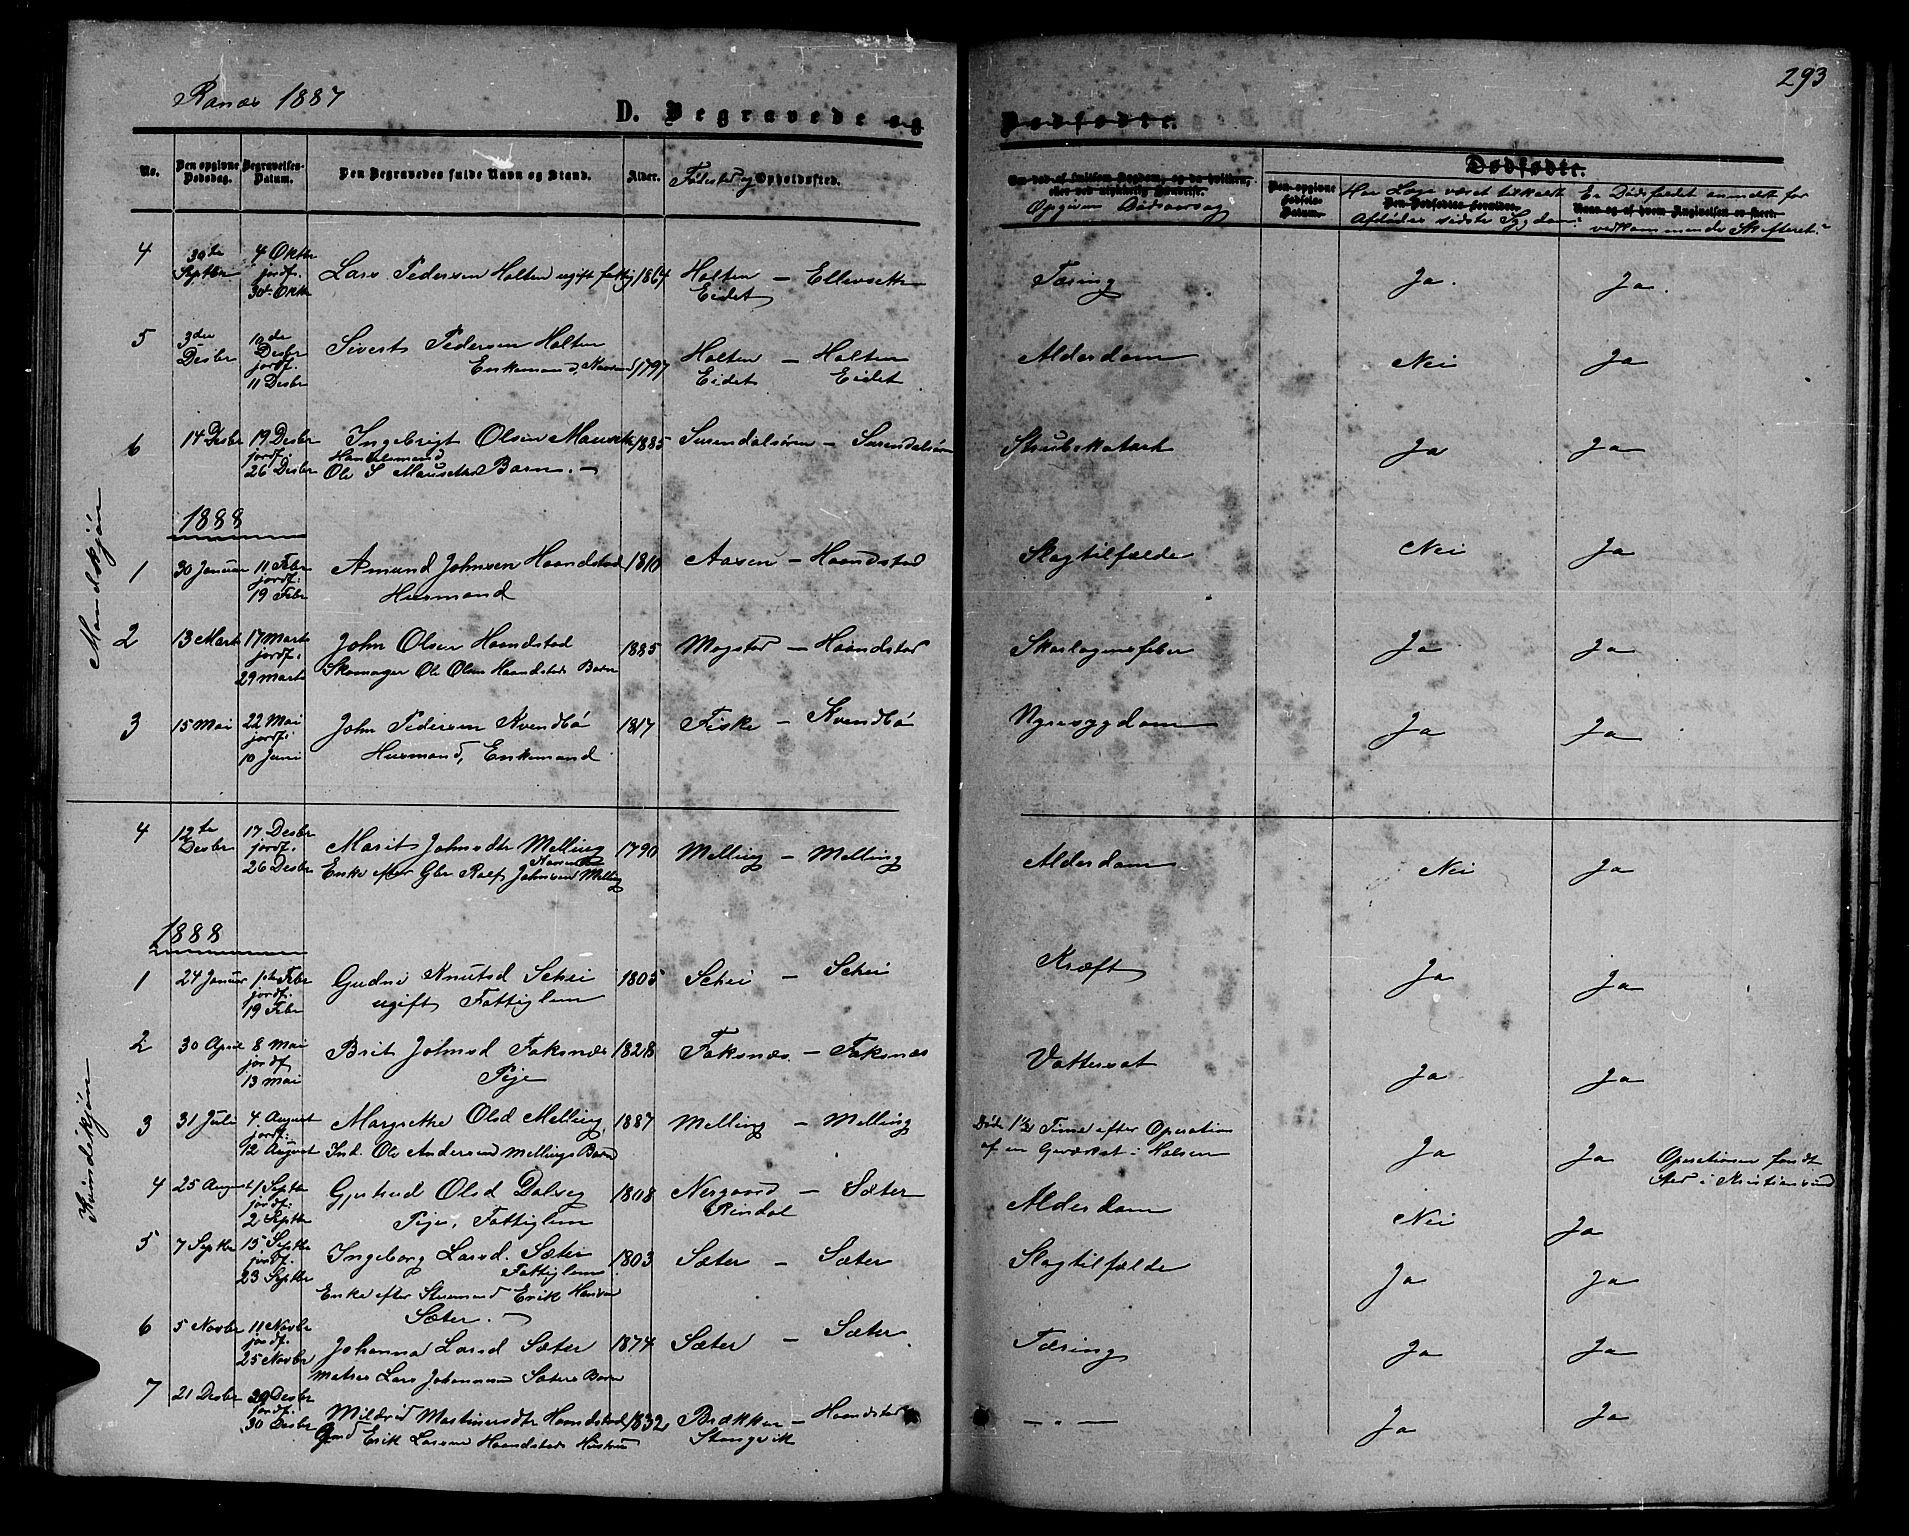 Ranæs 1887
293
D. Begravede og
Dødfødte.
No.
Den opgivne Dødsdag.
Begravelses-Datum.
Den Begravedes fulde Navn og Stand.
Alder.
Fødested og Opholdssted.
Om død af smitsom Sygdom, og da hvilken,
eller ved ulykkelig Hændelse.
Opgiven Dødsaarsag
Dødfødte.
Den opgivne Fødsels-Datum.
Den Dødfødtes Forældre.
Har Læge været tilkaldt
Afdødes sidste Sygdom?
Navn og af hvem Angivelsen er skeet.
Er Dødsfaldet anmeldt for
vedkommende Skifteret?
Mandskjøn
4
30te Septbr
4 Oktbr
jordf.
30te Oktbr
Lars Pedersen Holten ugift fattig
1864
Holten — Ellevsæter
Eidet
Tæring
Ja.
Ja.
5
3die Desbr
Desbr
jordf.
11 Desbr
Sivert Pedersen Holten
Enkemand,
1797
Holten — Holten
Eidet Eidet
Alderdom
Nei
Ja
6
14 Desbr
19 Desbr
jordf.
26 Desbr
Ingebrigt Olsen Mauseth
Handelsmand
Ole S Mauseths Barn. —
1885
Surendalsøren — Surendalsøren
Strubekatarh
Ja
Ja
1888
1
30 Januar
11 Febr
jordf.
19 Febr
Amund Johnsen Haandstad
Husmand
1810
Aasen — Haandstad
Slagtilfælde
Nei
Ja
2
13 Marts
17 Marts
jordf.
29 Marts
John Olsen Haandstad
Skomager Ole Olsen Haandstads Barn
1885
Mogstad — Haandstad
Skarlagensfeber
Ja
Ja
3
15 Mai
22 Mai
jordf.
10 Juni
John Pedersen Kvendbø
Husmand, Enkemand
1817
Fiske — Kvendbø
Nyresygdom
Ja
Ja
Kvindekjøn
4
12te Desbr
17 Desbr
jordf.
26 Desbr
Marit Johnsdtr Melling
Enke efter Gbr Rolf Johnsen Melling
1790
Melling — Melling
Alderdom
Nei
Ja
1888
1
24 Januar
Febr
jordf.
19 Febr
Gudni Knutsd Schei
ugift Fattiglem
1805
Schei — Schei
Kræft
Ja
Ja
2
30 April
8 Mai
jordf
13 Mai
Brit Johnsd Faksnæs
Pige
1828
Faksnæs — Faksnæs
Vattersot
Ja
Ja
3
31 Juli
4. August
jordf.
12 August
Margrethe Olsd Melling,
Ind. Ole Andersens Mellings Barn
1887
Melling — Melling
Døde 1½ Time efter Operation
af en Geværkst i Halsen
Ja
Ja
Operationen fandt
Sted i Kristiansund
4
25 August
1 Septbr
jordf.
2 Septbr
Gjertrud Olsd Dalseg
Pige, Fattiglem
1808
Nergaard — Sæter
Rindal
Alderdom
Nei
Ja
5
7 Septbr
15 Septbr
jordf.
23 Septbr
Ingeborg Larsd. Sæter
Fattiglem
Enke efter Stuemand Erik Hansen
Sæter. —
1803
Sæter — Sæter
Slagtilfælde
Ja
Ja
6
5 Novbr
11 Novbr
jordf.
25 Novbr
Johanna Larsd Sæter
Matros Lars Johannesen Sæters Barn
1874
Sæter — Sæter
Tæring
Ja
Ja
7
21 Desbr
29 Desbr
jordf.
30 Desbr
Mildrid Martinusdtr Haandstad
Gmd Erik Larsen Haandstads Hustru
1832
Brækken — Haandstad
Stangvik
— " —
Ja
Ja